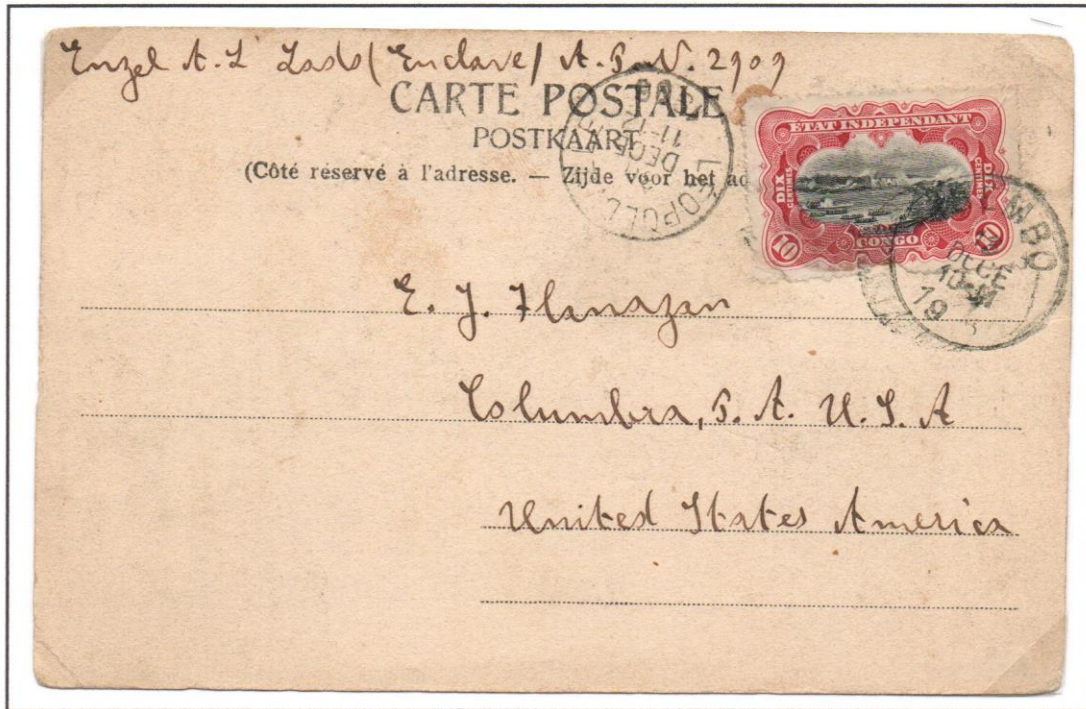 Engel A. L Lado (Enclave) A. P. N. 2909
CARTE POSTALE
POSTKAART
(Côté réservé à l'adresse. — Zijde voor het
ETAT INDEPENDANT
DIX CENTIMES
DIX CENTIMES
10
CONGO
10
11-M
DECE
LEOPOLDV
DECE
10-M
19
E. J. Flanagan
Columbia, P. A. U. S. A
United States America